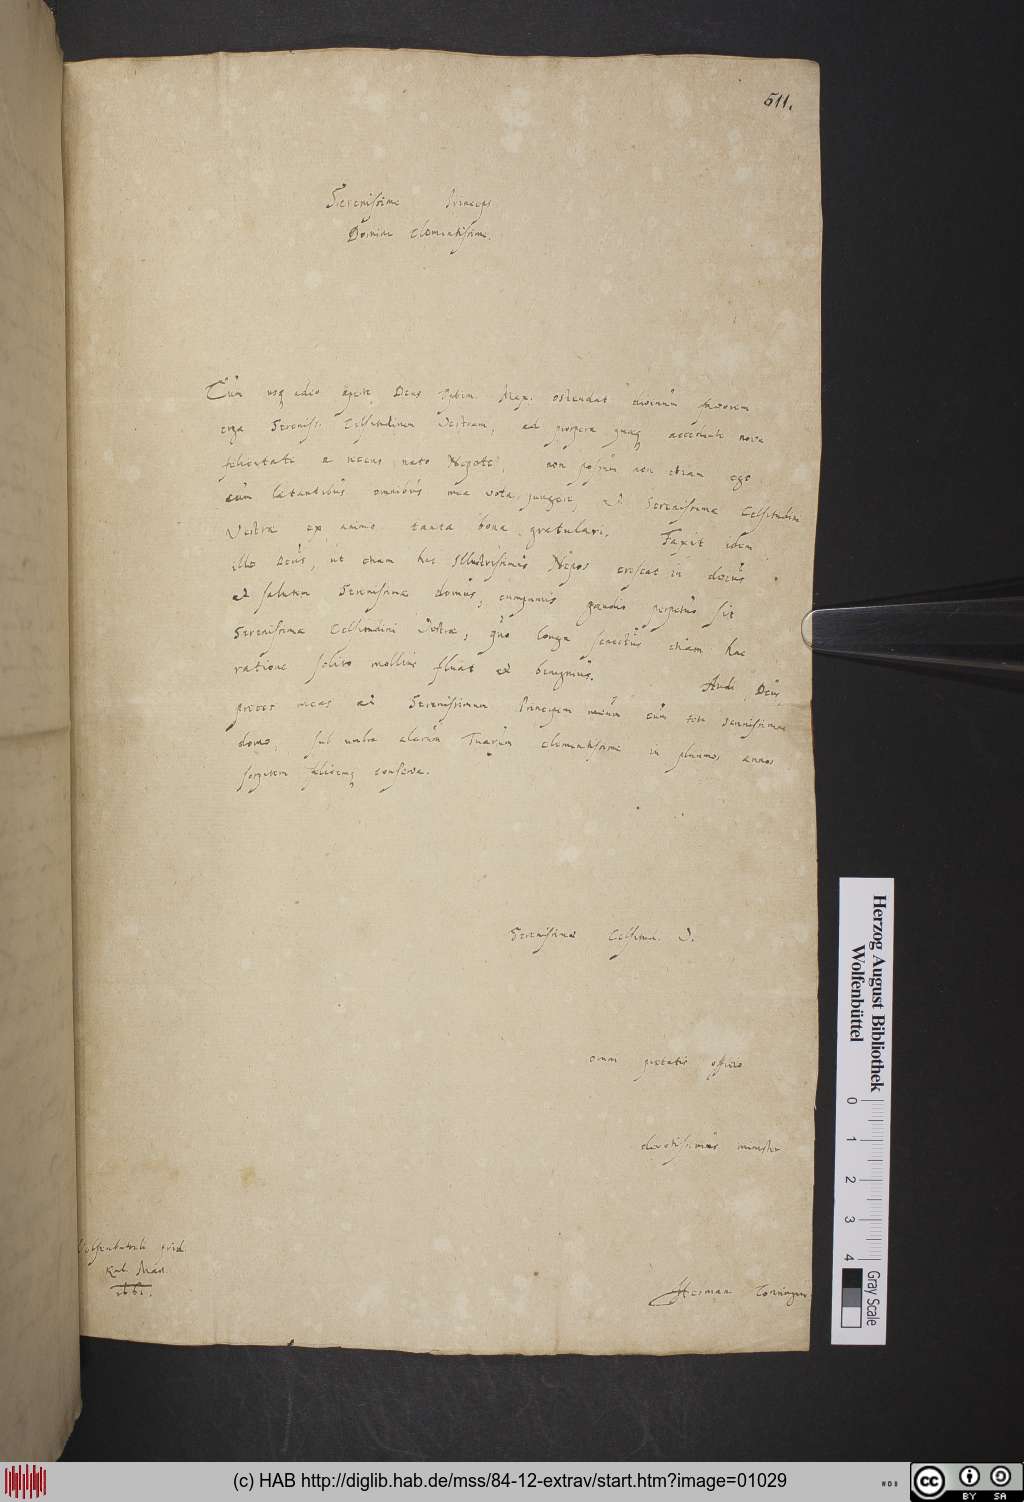 511.
Serenissime Princeps
Domine Clementissime.
Cum usq adeo Deus Optim. Max. ostendat divinum favorem
erga Sereniss. Celsitudinem Vestram, ad prospera quaeq accedente nova
felicitate e recens nato Nepote, non possum non etiam ego
cum laetantibus omnibus mea vota jungere, et Serenissimae Celsitudini
Vestrae ex animo tanta bona gratulari. Faxit idem
ille Deus, ut etiam hic Illustrissimus Nepos crescat in decus
et salutem Serenissimae domus, cumprimis gaudio perpetuo sit
Serenissimae Celsitudini Vestrae, quo longa senectus etiam hac
ratione solito mollius fluat et benignius. Audi Deus
preces meas et Serenissimum Principem meum cum tota Serenissima
domo, sub umbra alarum Tuarum clementissime in plurimos annos
sospitem felicemq conserva.
Serenissimae Celsitud. V.
omni pietatis officio
devotissimus minister
Kal. Mart.
1661.
Herman Conringius
Herzog August Bibliothek
Wolfenbüttel
0 1 2 3 4
Gray Scale
(c) HAB http://diglib.hab.de/mss/84-12-extrav/start.htm?image=01029
cc BY SA